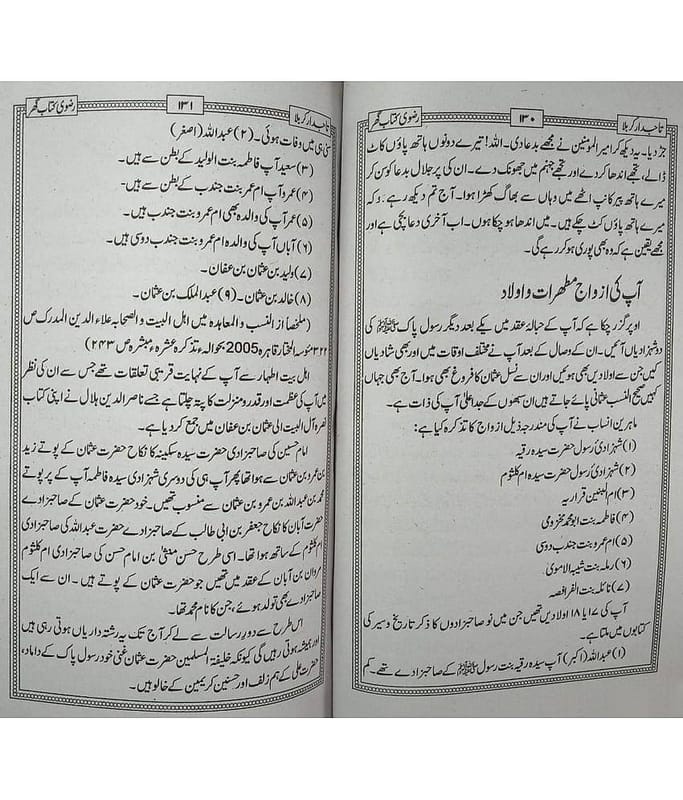 تاجدار کربلا ۱۳۰ رضوی کتاب گھر
جڑ دیا۔ یہ دیکھ کر امیر المومنین نے مجھے بددعا دی۔ اللہ! تیرے دونوں ہاتھ پاؤں کاٹ
ڈالے، تجھے اندھا کر دے اور تجھے جہنم میں جھونک دے۔ ان کی پر جلال بددعا کو سن کر
میرے ہاتھ پیر کانپ اٹھے میں وہاں سے بھاگ کھڑا ہوا۔ آج تم دیکھ رہے ہو کہ
میرے ہاتھ پاؤں کٹ چکے ہیں۔ میں اندھا ہو چکا ہوں۔ اب آخری دعا بچی ہے اور
مجھے یقین ہے کہ وہ بھی پوری ہو کر رہے گی۔
آپ کی ازواج مطہرات و اولاد
اوپر گزر چکا ہے کہ آپ کے حبالۂ عقد میں یکے بعد دیگر رسول پاک ﷺ کی
دو شہزادیاں آئیں۔ ان کے وصال کے بعد آپ نے مختلف اوقات میں اور بھی شادیاں
کیں جن سے اولادیں بھی ہوئیں اور ان سے نسل عثمان کا فروغ بھی ہوا۔ آج بھی جہاں
کہیں صحیح النسب عثمانی پائے جاتے ہیں ان سبھوں کے جد اعلیٰ آپ کی ذات ہے۔
ماہرین انساب نے آپ کی مندرجہ ذیل ازواج کا تذکرہ کیا ہے:
(۱) شہزادئ رسول حضرت سیدہ رقیہ
(۲) شہزادئ رسول حضرت سیدہ ام کلثوم
(۳) ام البنین فزاریہ
(۴) فاطمہ بنت ابو محمد مخزومی
(۵) ام عمرو بنت جندب دوسی
(۶) رملہ بنت شیبہ الاموی
(۷) نائلہ بنت الفرافصہ
آپ کی ۱۷ یا ۱۸ اولادیں تھیں جن میں نو صاحبزادوں کا ذکر تاریخ و سیر کی
کتابوں میں ملتا ہے۔
(۱) عبداللہ (اکبر) آپ سیدہ رقیہ بنت رسول ﷺ کے صاحبزادے تھے۔ کم
تاجدار کربلا ۱۳۱ رضوی کتاب گھر
سنی ہی میں وفات ہوئی۔ (۲) عبداللہ (اصغر)
(۳) سعید آپ فاطمہ بنت الولید کے بطن سے ہیں۔
(۴) عمرو آپ ام عمر بنت جندب کے بطن سے ہیں۔
(۵) عمر آپ کی والدہ بھی ام عمرو بنت جندب ہیں۔
(۶) آبان آپ کی والدہ ام عمرو بنت جندب دوسی ہیں۔
(۷) ولید بن عثمان بن عفان۔
(۸) خالد بن عثمان۔ (۹) عبدالملک بن عثمان۔
(ملخصا از النسب و المعاہدہ میں اہل البیت و الصحابہ علاء الدین المدرک ص
۳۲۲ مؤسسہ المختار قاہرہ 2005 بحوالہ تذکرہ عشرہ مبشرہ ص ۲۴۳)
اہل بیت اطہار سے آپ کے نہایت قریبی تعلقات تھے جس سے ان کی نظر
میں آپ کی عظمت اور قدر و منزلت کا پتہ چلتا ہے جسے ناصر الدین ہلال نے اپنی کتاب
آل البیت الی عثمان بن عفان میں جمع کر دیا ہے۔
امام حسین کی صاحبزادی حضرت سیدہ سکینہ کا نکاح حضرت عثمان کے پوتے زید
بن عمرو بن عثمان سے ہوا تھا پھر آپ ہی کی دوسری شہزادی سیدہ فاطمہ آپ کے پر پوتے
محمد بن عبداللہ بن عمرو بن عثمان سے منسوب تھیں۔ خود حضرت عثمان کے صاحبزادے
حضرت آبان کا نکاح جعفر بن ابی طالب کے صاحبزادے حضرت عبداللہ کی صاحبزادی
ام کلثوم کے ساتھ ہوا تھا۔ اسی طرح حسن مثنیٰ بن امام حسن کی صاحبزادی ام کلثوم
مروان بن آبان کے عقد میں تھیں جو حضرت عثمان کے پوتے ہیں۔ ان سے ایک
صاحبزادے بھی تولد ہوئے، جن کا نام محمد تھا۔
اس طرح سے دور رسالت سے لے کر آج تک یہ رشتہ داریاں ہوتی رہی ہیں
اور ہمیشہ ہوتی رہیں گی کیونکہ خلیفۃ المسلمین حضرت عثمان غنی خود رسول پاک کے داماد،
حضرت علی کے ہم زلف اور حسنین کریمین کے خالو ہیں۔